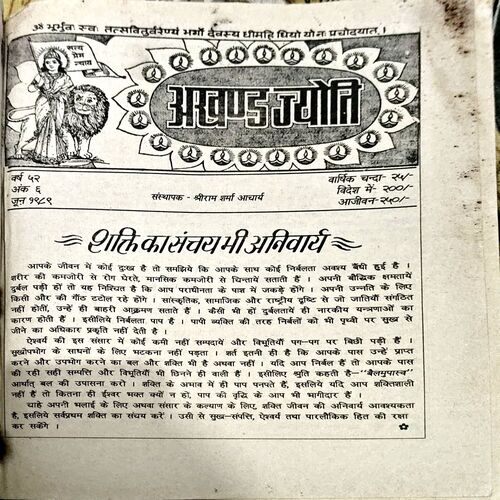 ॐ भूर्भुवः स्वः तत्सवितुर्वरेण्यं भर्गो देवस्य धीमहि धियो यो नः प्रचोदयात् ।
सत्य
प्रेम
न्याय
अखण्ड ज्योति
वर्ष ५२
अंक ६
जून १९८९
संस्थापक - श्रीराम शर्मा आचार्य
वार्षिक चन्दा- २५/-
विदेश में- २००/-
आजीवन- २५०/-
शक्ति का संचय भी अनिवार्य
आपके जीवन में कोई दुःख है तो समझिये कि आपके साथ कोई निर्बलता अवश्य बँधी हुई है ।
शरीर की कमजोरी से रोग घेरते, मानसिक कमजोरी से चिन्तायें सताती हैं । अपनी बौद्धिक क्षमतायें
दुर्बल पड़ी हों तो यह निश्चित है कि आप पराधीनता के पाश में जकड़े होंगे । अपनी उन्नति के लिए
किसी और की गाँठ टटोल रहे होंगे । सांस्कृतिक, सामाजिक और राष्ट्रीय दृष्टि से जो जातियाँ संगठित
नहीं होतीं, उन्हें ही बाहरी आक्रमण सताते हैं । कैसी भी हों दुर्बलतायें ही नारकीय यन्त्रणाओं का
कारण होती हैं । इसीलिये निर्बलता पाप है । पापी व्यक्ति की तरह निर्बलों को भी पृथ्वी पर सुख से
जीने का अधिकार प्रकृति नहीं देती है ।
ऐश्वर्य की इस संसार में कोई कमी नहीं सम्पदायें और विभूतियाँ पग-पग पर बिछी पड़ी हैं ।
सुखोपभोग के साधनों के लिए भटकना नहीं पड़ता । शर्त इतनी ही है कि आपके पास उन्हें प्राप्त
करने और उपभोग करने का बल और शक्ति भी है अथवा नहीं । यदि आप निर्बल हैं तो आपके पास
की रही सही सम्पत्ति और विभूतियाँ भी छिनने ही वाली हैं । इसीलिए श्रुति कहती है-- "बैलमुपास्व"
अर्थात् बल की उपासना करो । शक्ति के अभाव में ही पाप पनपते हैं, इसलिये यदि आप शक्तिशाली
नहीं हैं तो कितना ही ईश्वर भक्त क्यों न हों, पाप की वृद्धि के आप भी भागीदार हैं ।
चाहे अपनी भलाई के लिए अथवा संसार के कल्याण के लिए, शक्ति जीवन की अनिवार्य आवश्यकता
है, इसलिये सर्वप्रथम शक्ति का संचय करें । उसी से सुख-संपत्ति, ऐश्वर्य तथा पारलौकिक हित की रक्षा
कर सकेंगे ।